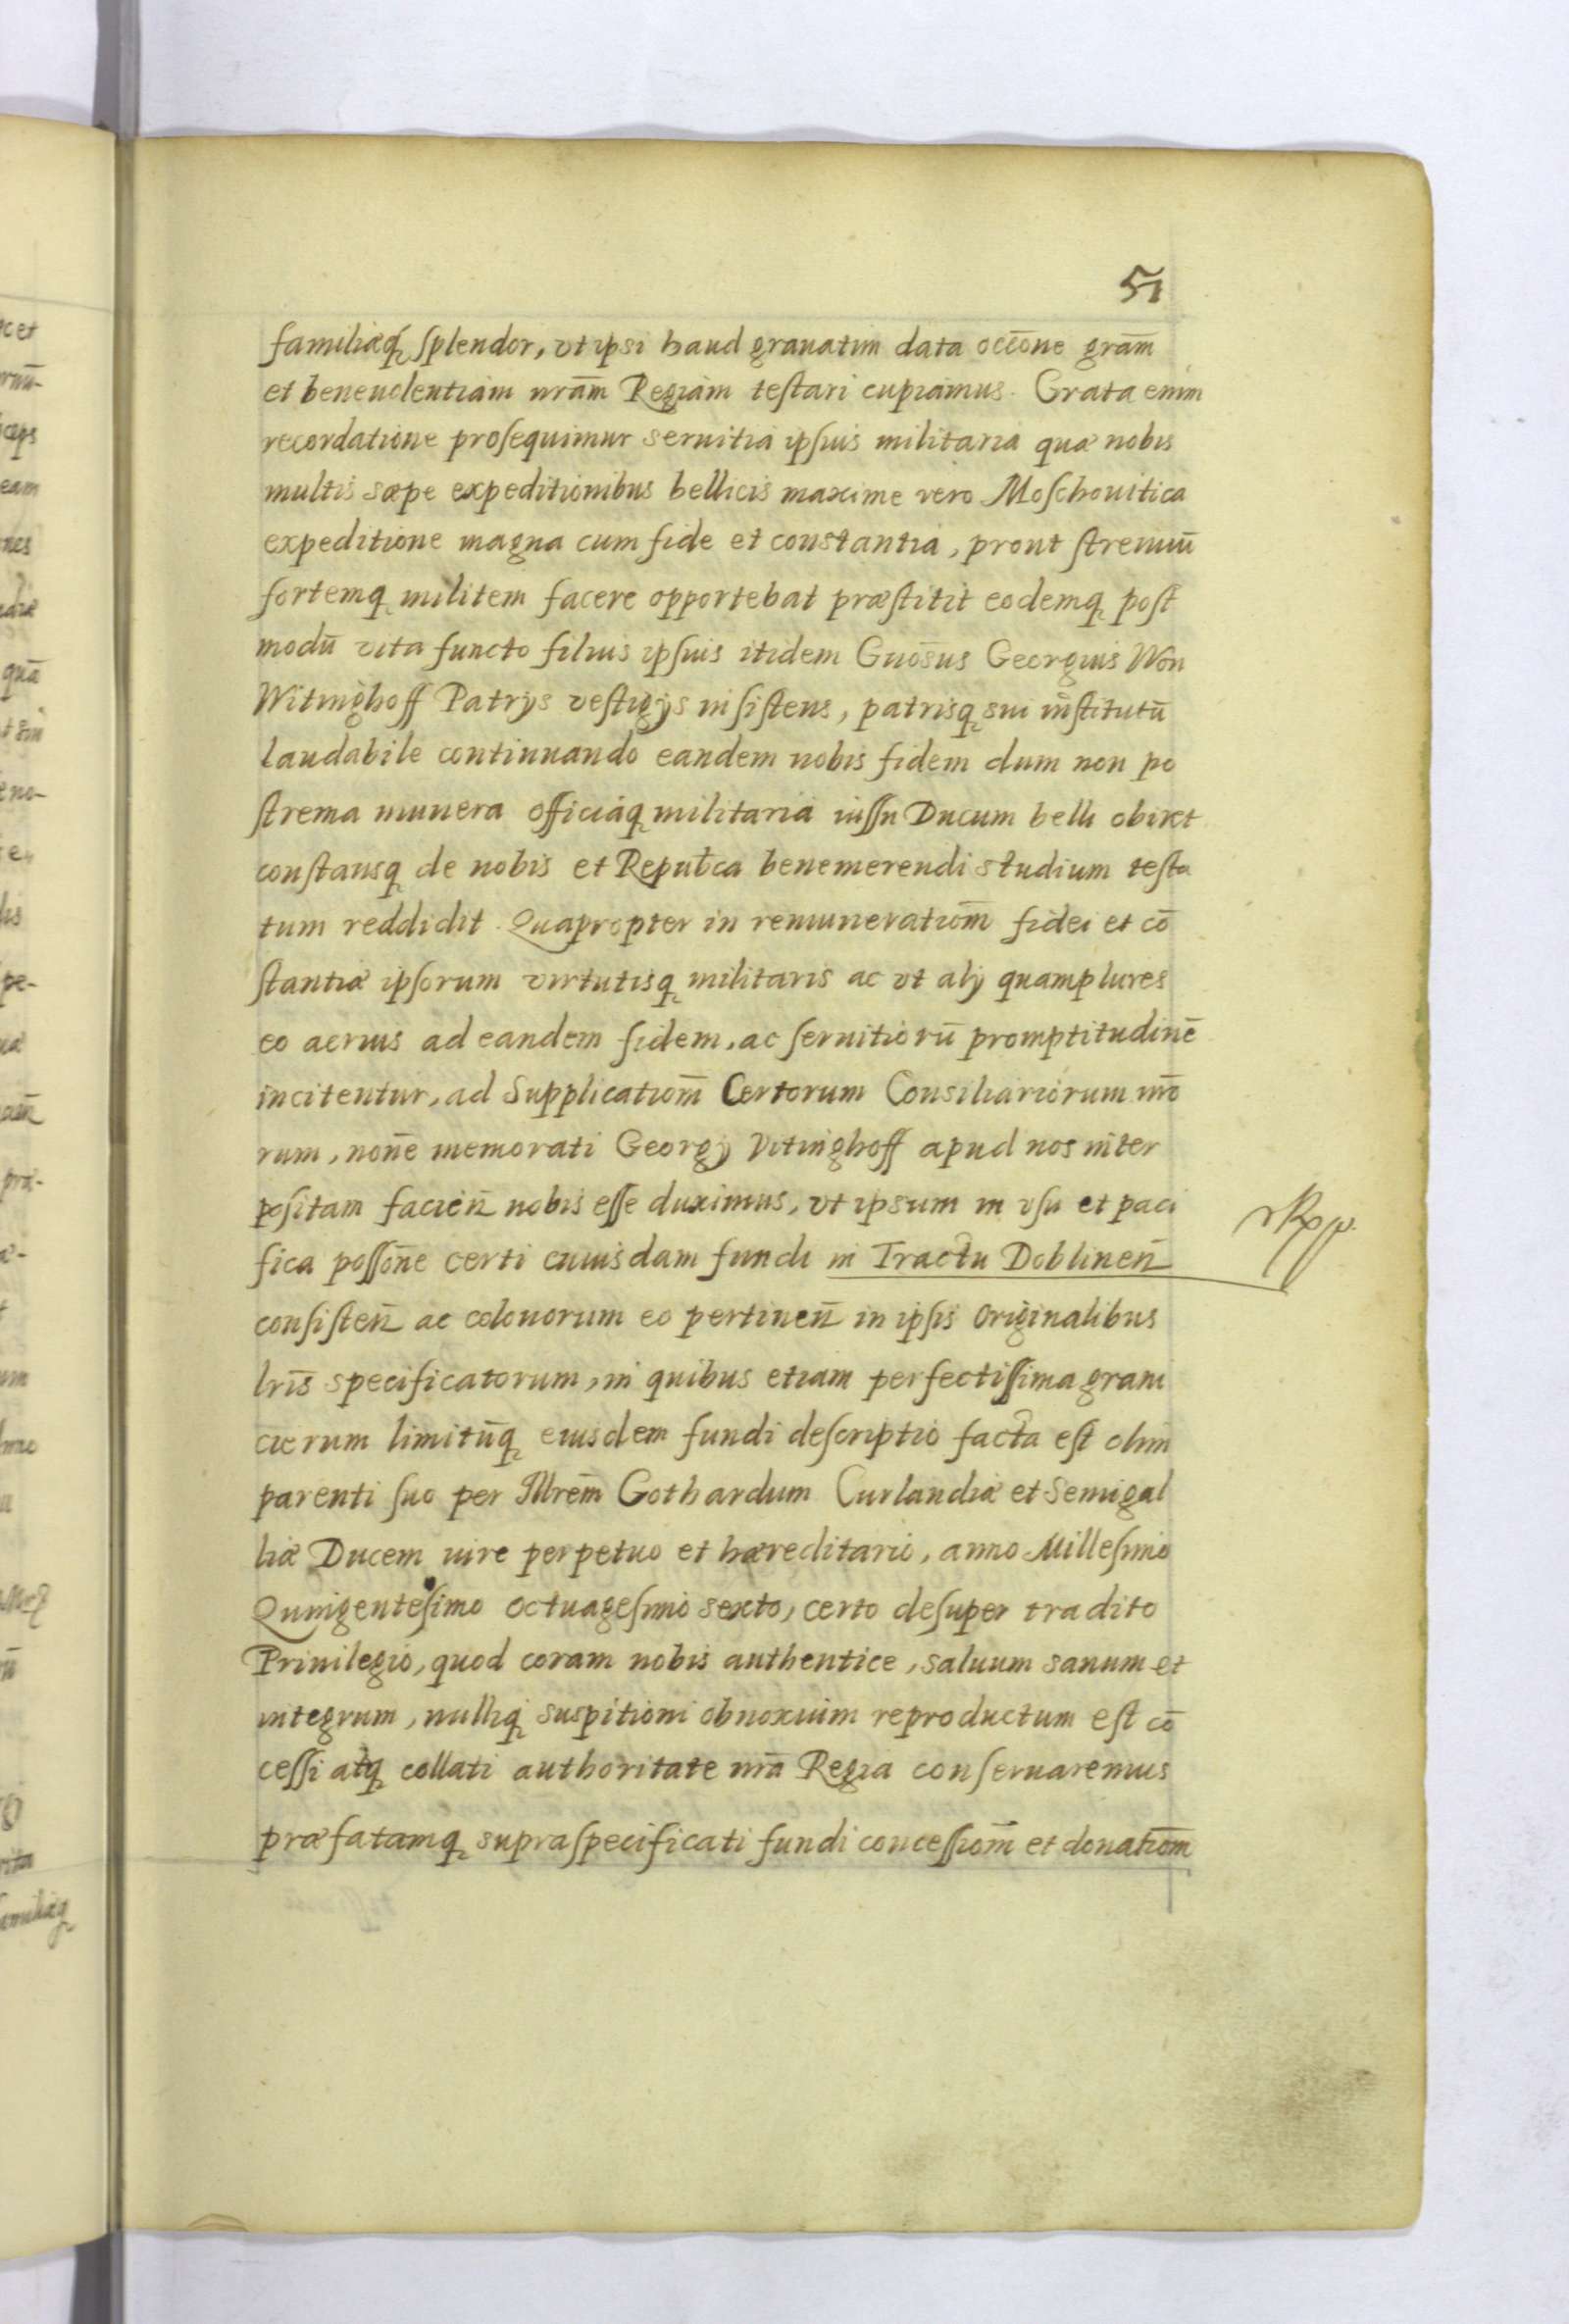 51
familiæq, splendor, vt ipsi haud grauatim data occōne grām
et beneuolentiam nrām Regiam testari cupiamus. Grata enim
recordatione prosequimur seruitia ipsius militaria quæ nobis
multis sæpe expeditionibus bellicis maxime vero Moschouitica
expeditione magna cum fide et constantia, prout strenuū
fortemq, militem facere opportebat præstitit eodemq, post
modū vita functo filius ipsius itidem Gnōsus Georgius Won
Witinghoff Patrys vestigys insistens, patrisq, sui institutū
laudabile continuando eandem nobis fidem dum non po
strema munera officiaq, militaria iussu Ducum belli obiret
constansq, de nobis et Republca benemerendi studium testa
tum reddidit. Quapropter in remunerationm̄ fidei et cō
stantiæ ipsorum virtutisq, militaris ac vt aly quamplures
eo acrius ad eandem fidem, ac seruitiorū promptitudinē
incitentur, ad Supplicationm̄ Certorum Consiliariorum nrō
rum, noñe memorati Georgy Vitinghoff apud nos inter
positam facieñ nobis esse duximus, vt ipsum in vsu et paci
fica possōne certi cuiusdam fundi in Tractu Doblineñ
consisteñ ac colonorum eo pertineñ in ipsis Originalibus
lrīs specificatorum, in quibus etiam perfectissima grani
cierum limitūq, eiusdem fundi descriptio facta est olim
parenti suo per Illrēm Gothardum Curlandiæ et Semigal
liæ Ducem iure perpetuo et hæreditario, anno Millesimo
Quingentesimo octuagesimo sexto, certo desuper tradito
Priuilegio, quod coram nobis authentice, saluum sanum et
integrum, nulliq, suspitioni obnoxium reproductum est cō
cessi atq, collati authoritate nrā Regia conseruaremus
præfatamq, supraspecificati fundi concessiom̄ et donatiom̄